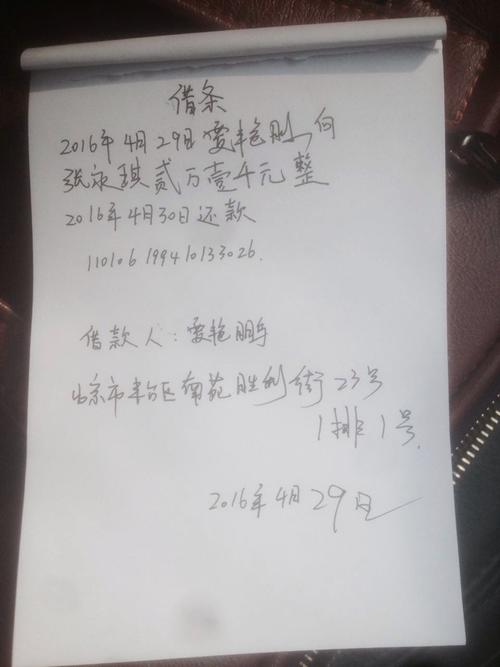 借条
2016年4月29日 艳鹏向
张永琪贰万壹千元整
2016年4月30日还款
110106199410133026.
借款人: 艳鹏
北京市丰台区南苑胜利街23号
1排1号.
2016年4月29日